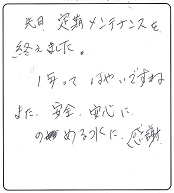 先日 定期メンテナンスを
終えました。
1年って はやいですね
また、安全、安心に
のめるつくに、感謝